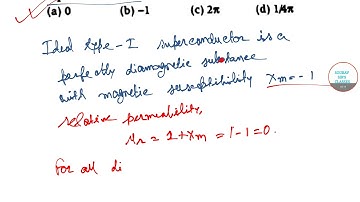 (a) 0 (b) –1 (c) 2π (d) 1/4π
Ideal type-I superconductor is a
perfectly diamagnetic substance
with magnetic susceptibility χm = -1
relative permeability,
μr = 1+χm = 1-1=0.
For all di